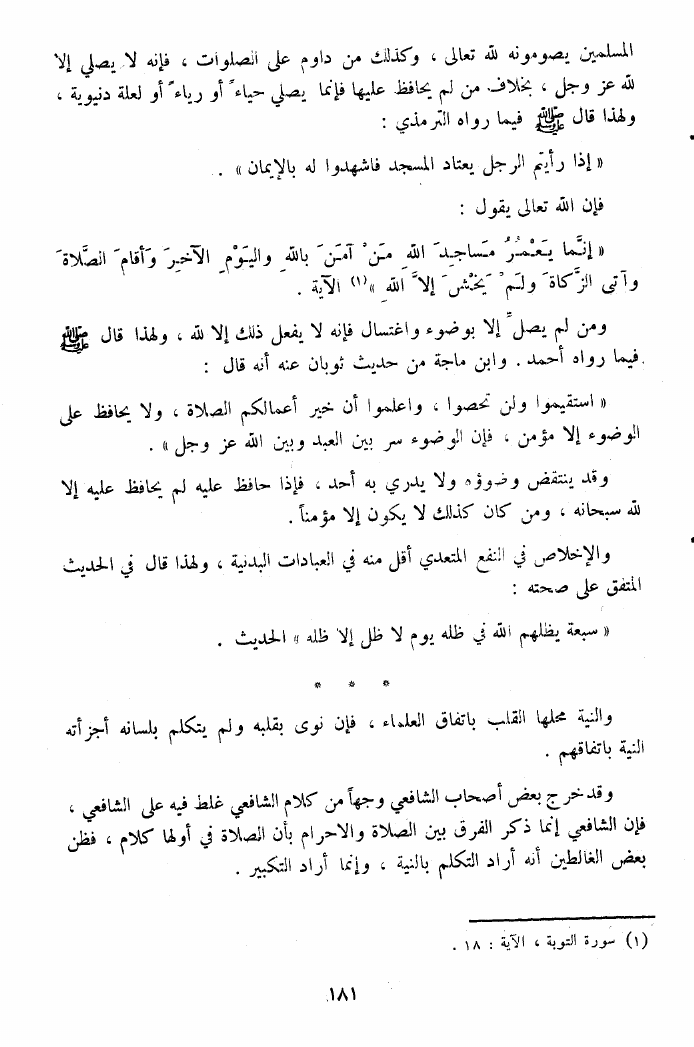 المسلمين يصومونه لله تعالى ، وكذلك من داوم على الصلوات ، فإنه لا يصلي إلا
لله عز وجل ، بخلاف من لم يحافظ عليها فإنما يصلي حياءً أو رياءً أو لعلة دنيوية ،
ولهذا قال ﷺ فيما رواه الترمذي :
« إذا رأيتم الرجل يعتاد المسجد فاشهدوا له بالإيمان » .
فإن الله تعالى يقول :
« إنَّما يَعْمُرُ مَساجِدَ اللهِ مَنْ آمَنَ بِاللهِ واليَوْمِ الآخِرِ وَأقامَ الصَّلاةَ
وآتى الزَّكاةَ ولَمْ يَخْشَ إلاَّ اللهَ »(١) الآية .
ومن لم يصلِّ إلا بوضوء واغتسال فإنه لا يفعل ذلك إلا لله ، ولهذا قال ﷺ
فيما رواه أحمد . وابن ماجة من حديث ثوبان عنه أنه قال :
« استقيموا ولن تحصوا ، واعلموا أن خير أعمالكم الصلاة ، ولا يحافظ على
الوضوء إلا مؤمن ، فإن الوضوء سر بين العبد وبين الله عز وجل » .
وقد ينتقض وضوؤه ولا يدري به أحد ، فإذا حافظ عليه لم يحافظ عليه إلا
لله سبحانه ، ومن كان كذلك لا يكون إلا مؤمناً .
والإخلاص في النفع المتعدي أقل منه في العبادات البدنية ، ولهذا قال في الحديث
المتفق على صحته :
« سبعة يظلهم الله في ظله يوم لا ظل إلا ظله » الحديث .
* * *
والنية محلها القلب باتفاق العلماء ، فإن نوى بقلبه ولم يتكلم بلسانه أجزأته
النية باتفاقهم .
وقد خرج بعض أصحاب الشافعي وجهاً من كلام الشافعي غلط فيه على الشافعي ،
فإن الشافعي إنما ذكر الفرق بين الصلاة والاحرام بأن الصلاة في أولها كلام ، فظن
بعض الغالطين أنه أراد التكلم بالنية ، وإنما أراد التكبير .
(١) سورة التوبة ، الآية : ١٨ .
١٨١